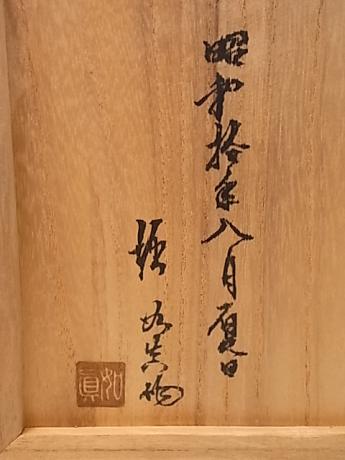 昭和拾年八月夏日
堀 如真物
如真